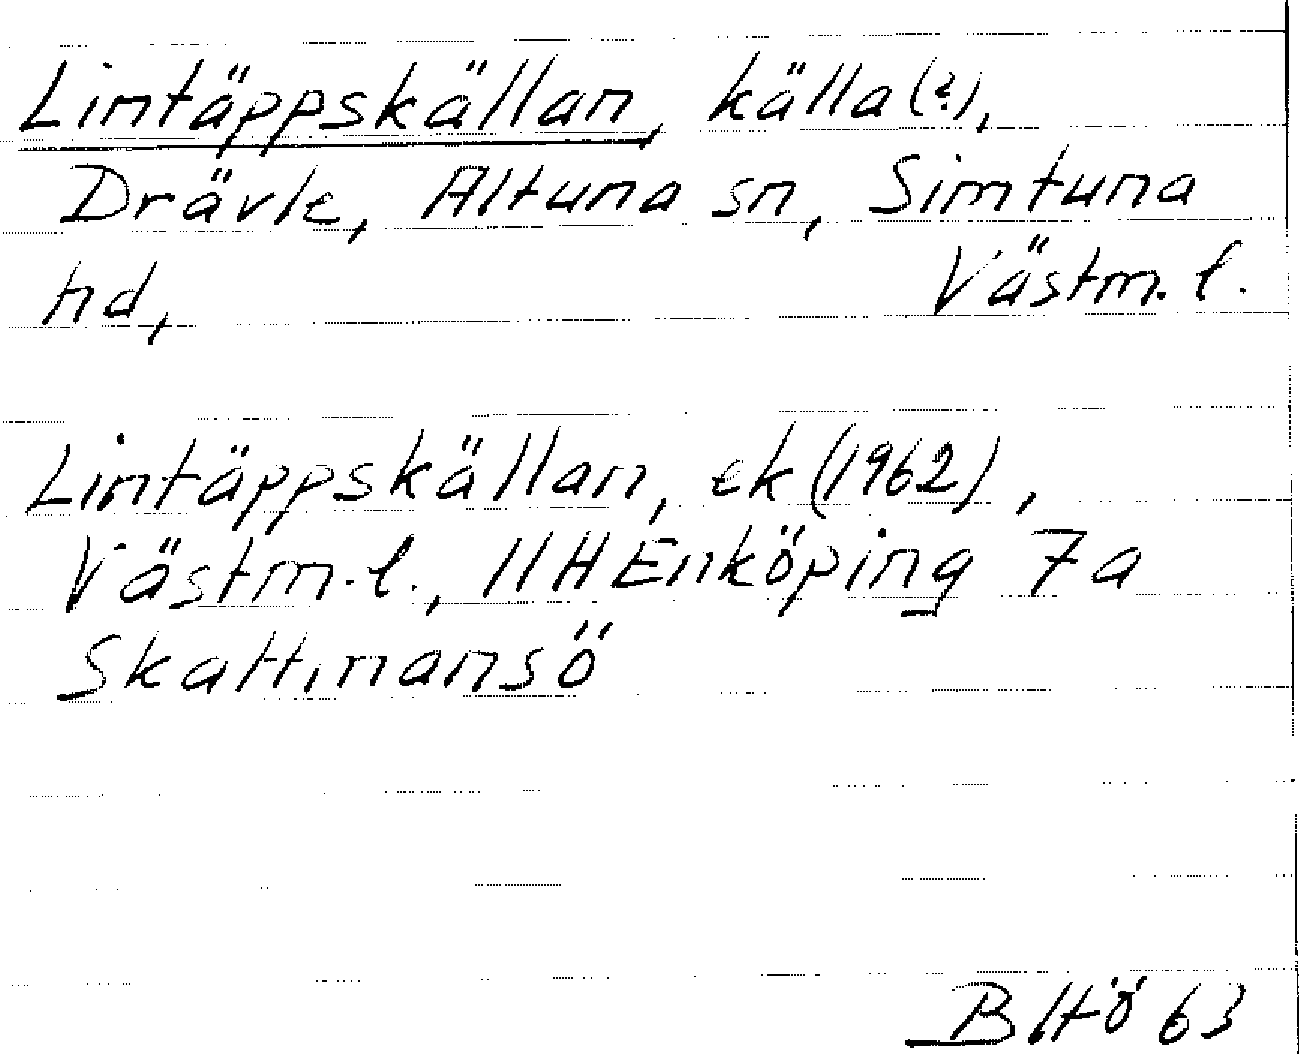 Lintäppskällan, källa(?),
Drävle, Altuna sn, Simtuna
hd, Västm. l.
Lintäppskällan, ek (1962),
Västm. l., 11H Enköping 7a
Skattmansö
BHö 63